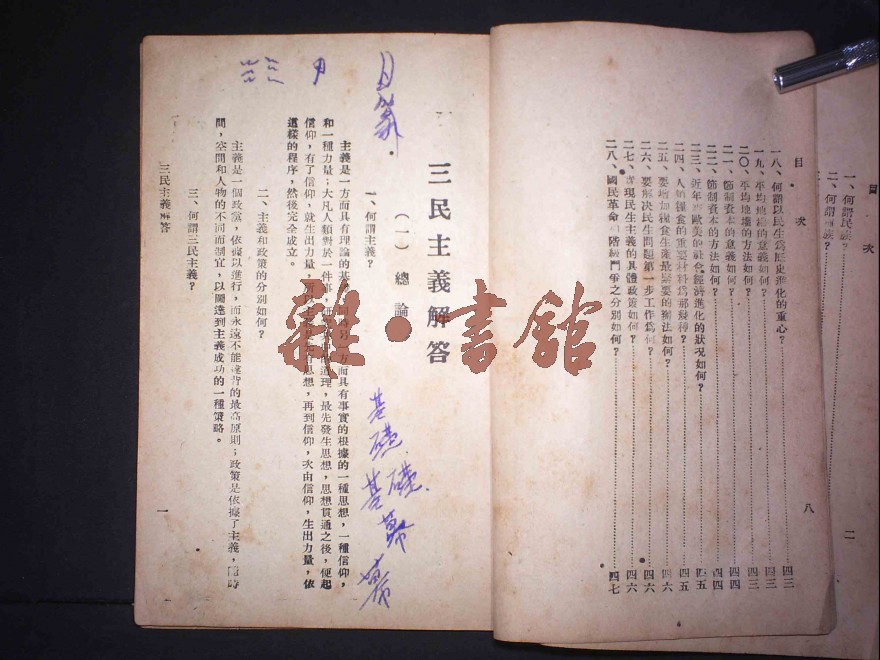 目次
一、何謂民族？
二、何謂種族？
二
目次
一八、何謂以民生為歷史進化的重心？……四三
一九、平均地權的意義如何？……四三
二〇、平均地權的方法如何？……四三
二一、節制資本的意義如何？……四四
二二、節制資本的方法如何？……四四
二三、近年來歐美的社會經濟進化的狀況如何？……四五
二四、人類糧食的重要材料為那幾種？……四五
二五、要增加糧食生產最緊要的辦法如何？……四六
二六、要解決民生問題第一步工作為何？……四六
二七、實現民生主義的具體政策如何？……四六
二八、國民革命 階級鬥爭之分別如何？……四七
八
三民主義解答
（一）總論
一、何謂主義？
主義是一方面具有理論的基 同時另一方面具有事實的根據的一種思想，一種信仰，
和一種力量；大凡人類對於一件事， 道理，最先發生思想，思想貫通之後，便起
信仰，有了信仰，就生出力量， 思想，再到信仰，次由信仰，生出力量，依
這樣的程序，然後完全成立。
二、主義和政策的分別如何？
主義是一個政黨，依據以進行，而永遠不能違背的最高原則；政策是依據了主義，因時
間，空間和人物的不同而制宜，以圖達到主義成功的一種策略。
三、何謂三民主義？
三民主義解答
一
基礎
雜·書館